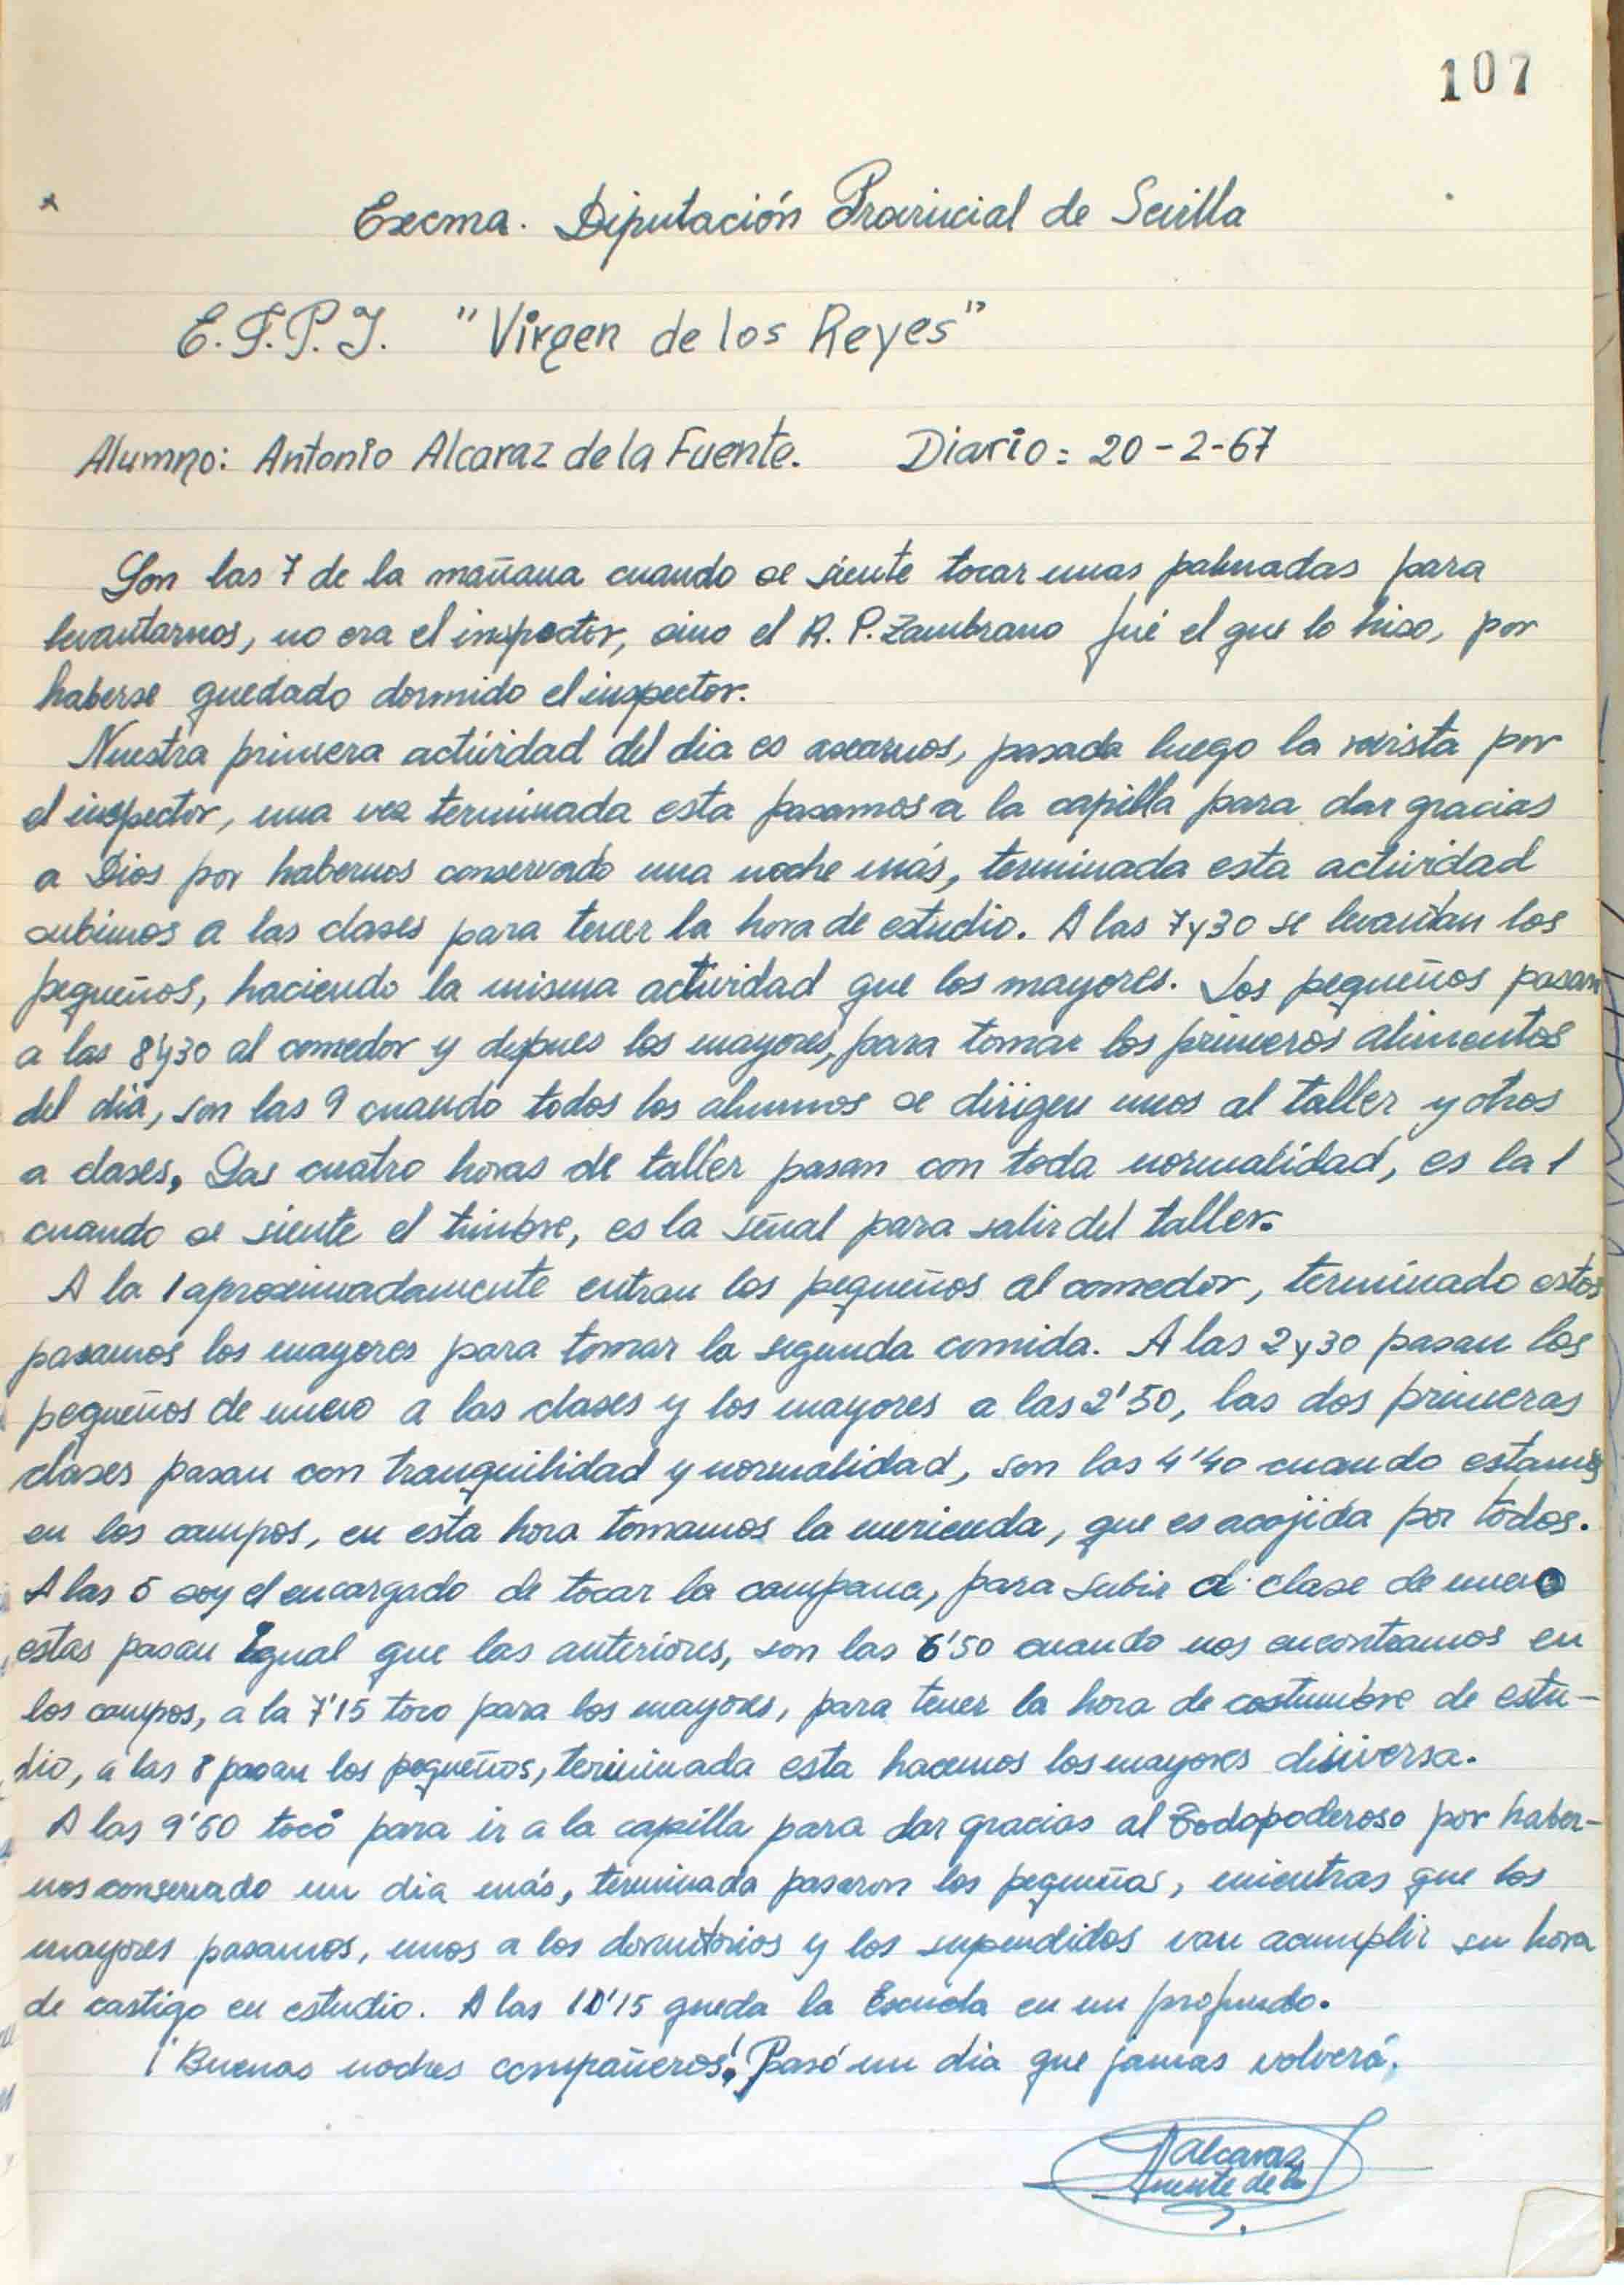 107
Excma. Diputación Provincial de Sevilla
E.F.P.I. "Virgen de los Reyes"
Alumno: Antonio Alcaraz de la Fuente. Diario = 20-2-67
Son las 7 de la mañana cuando se siente tocar unas palmadas para
levantarnos, no era el inspector, sino el R. P. Zambrano fué el que lo hiso, por
haberse quedado dormido el inspector.
Nuestra primera actividad del dia es asearnos, pasada luego la revista por
el inspector, una vez terminada esta pasamos a la capilla para dar gracias
a Dios por habernos conservado una noche más, terminada esta actividad
subimos a las clases para tener la hora de estudio. A las 7y30 se levantan los
pequeños, haciendo la misma actividad que los mayores. Los pequeños pasan
a las 8y30 al comedor y depues los mayores, para tomar los primeros alimentos
del dia, son las 9 cuando todos los alumnos se dirigen unos al taller y otros
a clases, Las cuatro horas de taller pasan con toda normalidad, es la 1
cuando se siente el timbre, es la señal para salir del taller.
A la 1 aproximadamente entran los pequeños al comedor, terminado estos
pasamos los mayores para tomar la segunda comida. A las 2y30 pasan los
pequeños de nuevo a las clases y los mayores a las 2'50, las dos primeras
clases pasan con tranquilidad y normalidad, son las 4'40 cuando estamos
en los campos, en esta hora tomamos la merienda, que es acojida por todos.
A las 5 soy el encargado de tocar la campana, para subir a clase de nuevo
estas pasan Igual que las anteriores, son las 6'50 cuando nos encontramos en
los campos, a la 7'15 toco para los mayores, para tener la hora de costumbre de estu-
dio, a las 8 pasan los pequeños, terminada esta hacemos los mayores diviversa.
A las 9'50 tocó para ir a la capilla para dar gracias al Todopoderoso por haber-
nos conservado un dia más, terminada pasaron los pequeños, mientras que los
mayores pasamos, unos a los dormitorios y los supendidos van acumplir su hora
de castigo en estudio. A las 10'15 queda la Escuela en un profundo.
¡Buenas noches compañeros! Pasó un dia que jamas volverá.
Alcaraz
Fuente de la